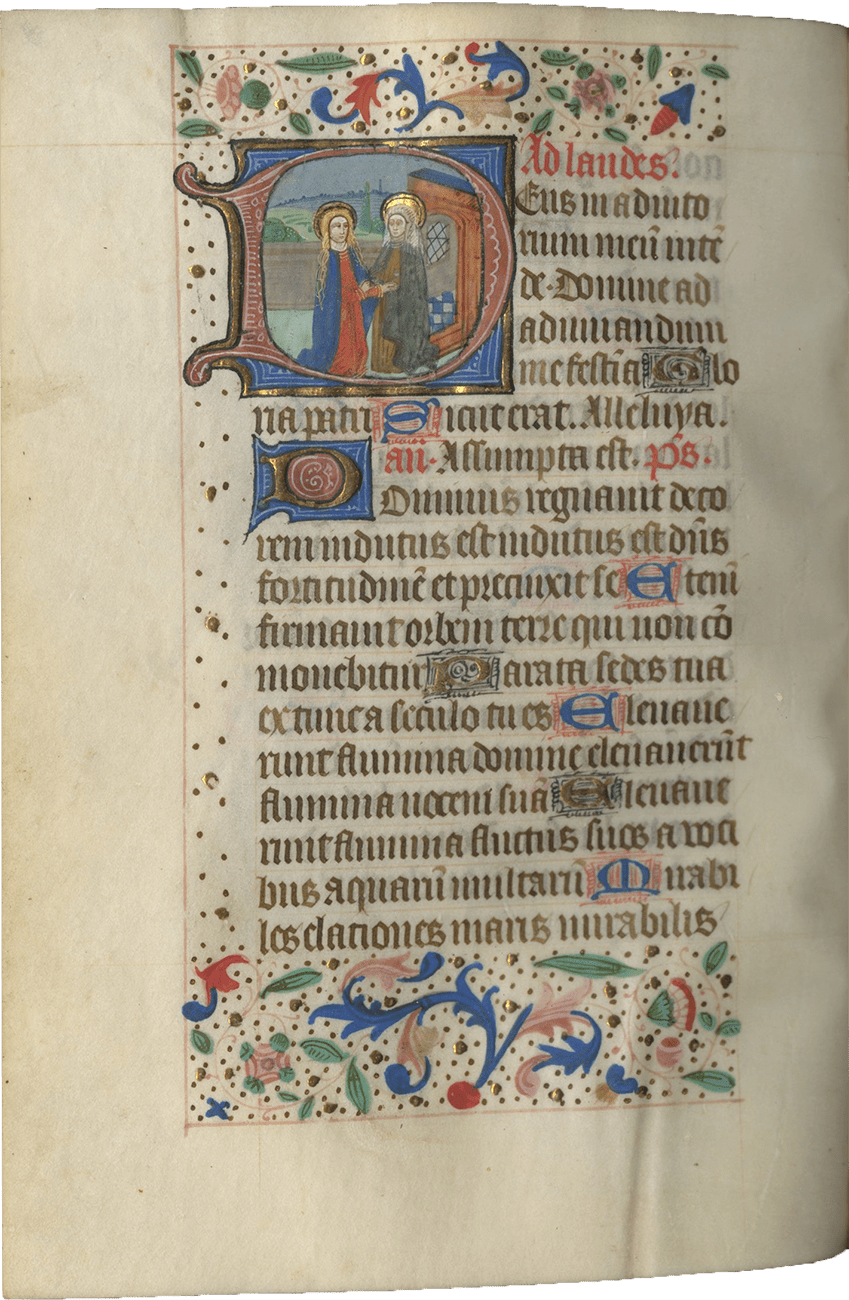 Ad laudes.
Deus in adiuto
rium meū intē
de. Domine ad
adiuuandum
me festīa Glo
ria patri Sicut erat. Alleluya.
an. Assumpta est. p̄s.
Dominus regnauit deco
rem indutus est indutus est dn̄s
fortitudinē et precinxit se Eteni
firmauit orbem terre qui non cō
mouebitur Parata sedes tua
ex tunc a seculo tu es Eleuaue
runt flumina domine eleuauerūt
flumina uocem suā Eleuaue
runt flumina fluctus suos a voci
bus aquarū multarū Mirabi
les elationes maris mirabilis